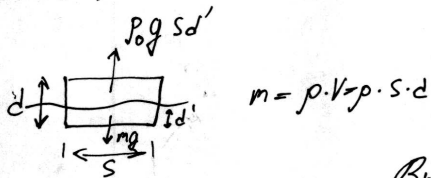 ρ₀ g S d'
d
d'
mg
S
m = ρ·V = ρ·S·d